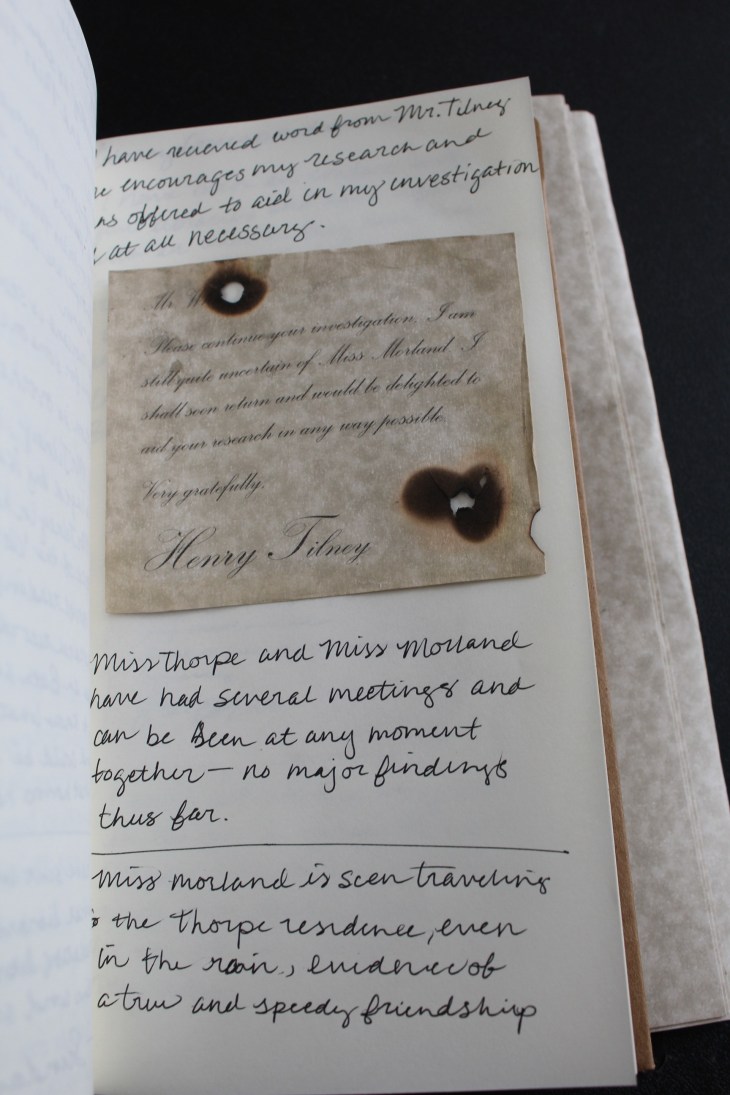 I have recieved word from Mr. Tilney
encourages my research and
offered to aid in my investigation
at all necessary.
Mr. W
Please continue your investigation. I am
still quite uncertain of Miss Morland. I
shall soon return and would be delighted to
aid your research in any way possible.
Very gratefully,
Henry Tilney
Miss Thorpe and Miss Morland
have had several meetings and
can be seen at any moment
together — no major findings
thus far.
Miss Morland is seen traveling
the Thorpe residence, even
in the rain, evidence of
a true and speedy friendship